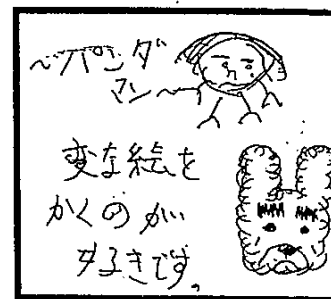 ～パンダ
マン～
変な絵を
かくのが
好きです。